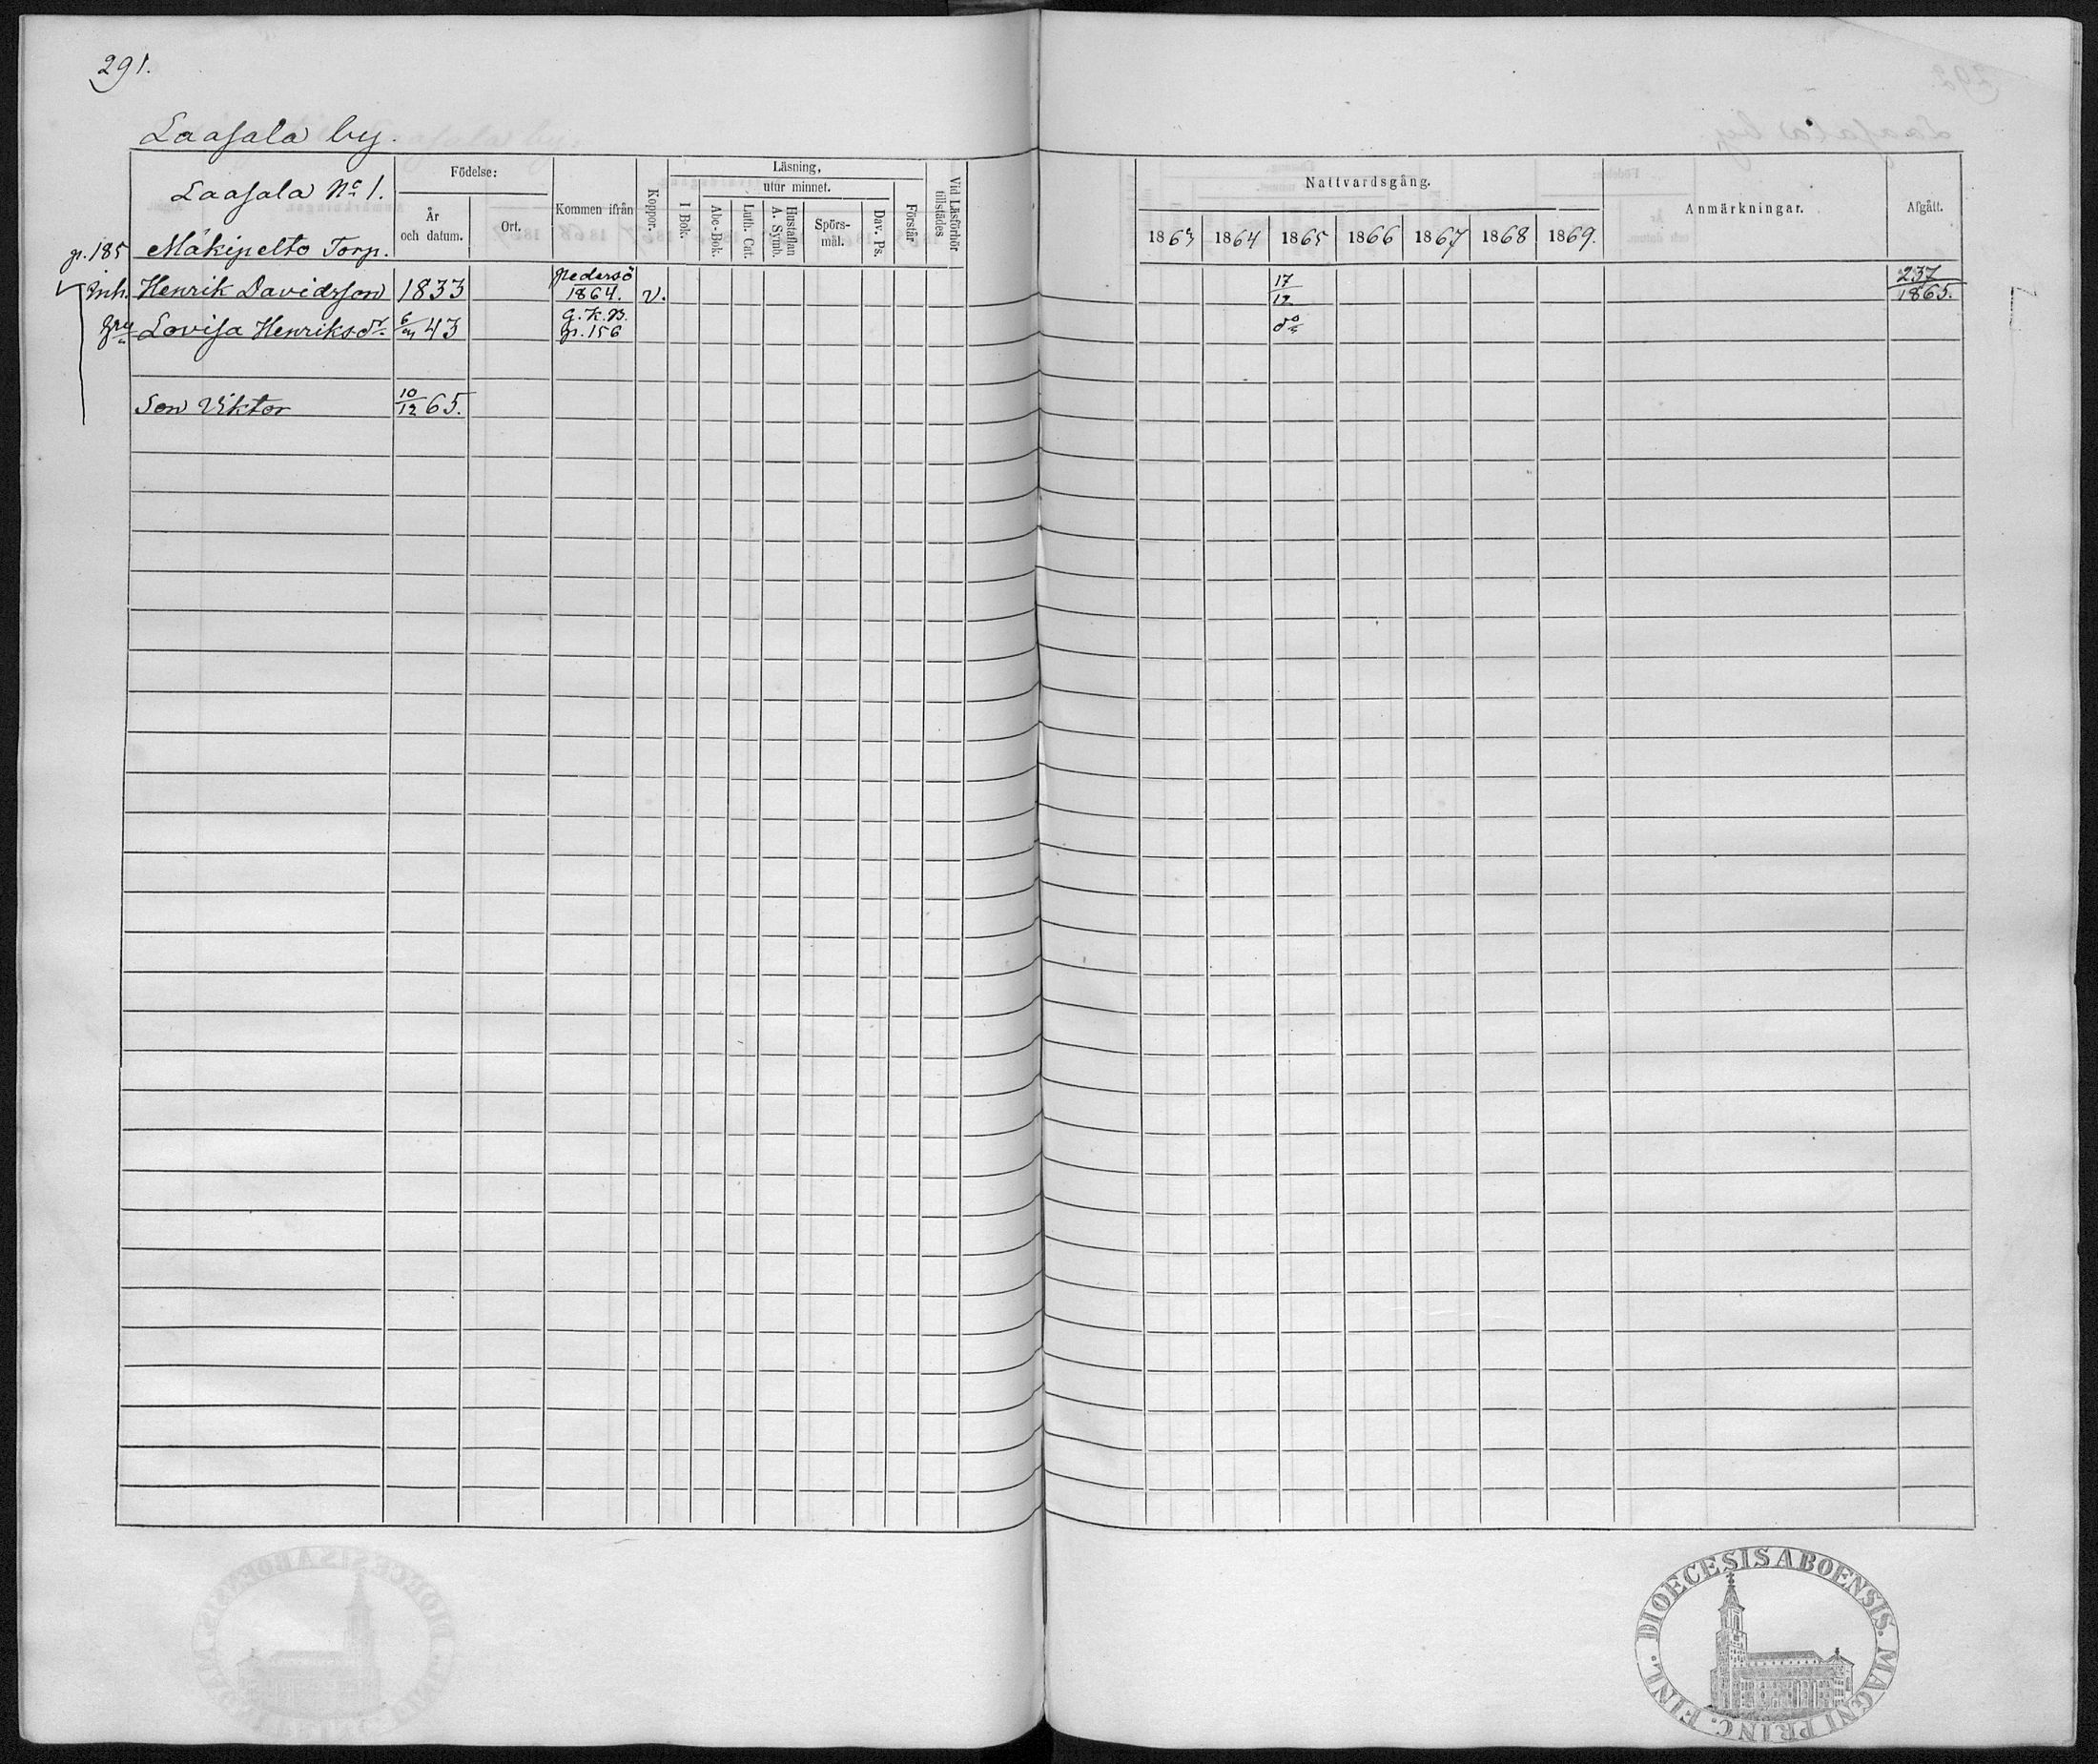 291.
Laasala by.
Laasala No 1.
Födelse:
År och datum.
Ort.
Kommen ifrån
Koppor.
Läsning,
utur minnet.
I Bok.
Abc-Bok.
Luth. Cat.
Hustaflan A. Symb.
Spörsmål.
Dav. Ps.
Förstår
Vid Läsförhör tillstädes
Nattvardsgång.
1863 1864 1865 1866 1867 1868 1869.
Anmärkningar.
Afgått.
p. 185 Mäkipelto Torp.
Inh. Henrik Davidsson 1833 Pedersö 1864. v. 17/12 237/1865.
Lovisa Henriksdr 43 G.K.B. p. 156 do
Son Viktor 10/12 65.
DIOECESIS ABOENSIS. MAGNI PRINC. FINL.